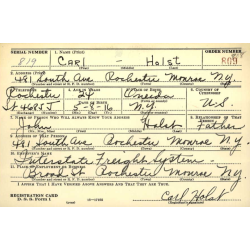 SERIAL NUMBER 1. NAME (Print) ORDER NUMBER
819 Carl — Holst 809
2. ADDRESS (Print)
481 South Ave Rochester Monroe N.y.
3. TELEPHONE 4. AGE IN YEARS 5. PLACE OF BIRTH 6. COUNTRY OF CITIZENSHIP
Rochester 24 Oneida
DATE OF BIRTH
St 4685J 5-8-16 N.Y. U.S.
7. NAME OF PERSON WHO WILL ALWAYS KNOW YOUR ADDRESS 8. RELATIONSHIP OF THAT PERSON
John Holst Father
9. ADDRESS OF THAT PERSON
481 South Ave Rochester Monroe N.y.
10. EMPLOYER'S NAME
Interstate Freight System -
11. PLACE OF EMPLOYMENT OR BUSINESS
Broad St Rochester Monroe N.y.
I AFFIRM THAT I HAVE VERIFIED ABOVE ANSWERS AND THAT THEY ARE TRUE.
REGISTRATION CARD
D. S. S. Form 1 Carl Holst